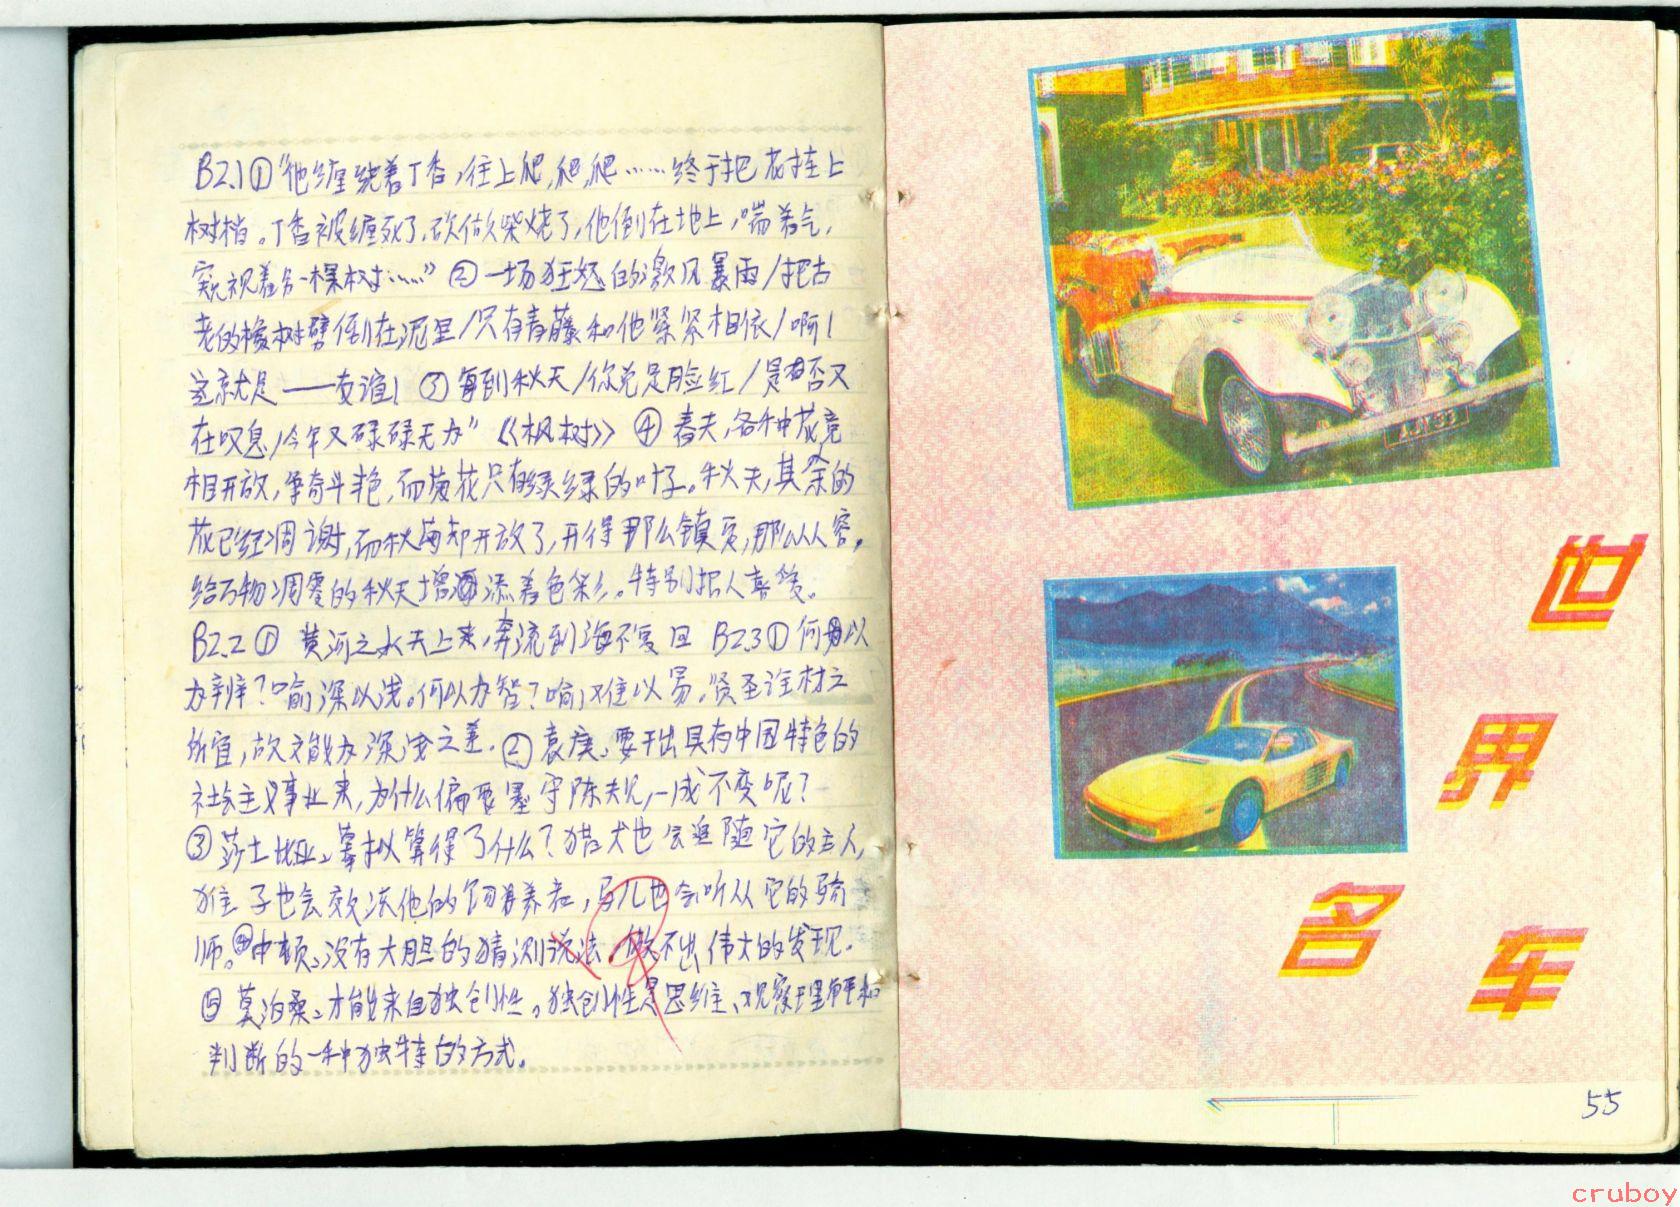 B2.1①“他缠绕着丁香，往上爬，爬，爬……终于把花挂上
树梢。丁香被缠死了，砍做柴烧了，他倒在地上，喘着气，
窥视着另一棵树……”②一场狂怒的激风暴雨/把古
老的橡树劈倒在泥里/只有青藤和他紧紧相依/啊！
这就是——友谊！③每到秋天/你总是脸红/是否又
在叹息/今年又碌碌无为”《枫树》④春天，各种花竞
相开放，争奇斗艳，而菊花只有绿绿的叶子。秋天，其余的
花已经凋谢，而秋菊却开放了，开得那么镇定，那么从容，
给万物凋零的秋天增添着色彩。特别招人喜爱。
B2.2① 黄河之水天上来，奔流到海不复回 B2.3①何以
为辨？喻深以浅。何以为智？喻难以易。贤圣诠材之
所宜，故文能为深浅之差。②袁庚、要干出具有中国特色的
社会主义事业来，为什么偏要墨守陈规，一成不变呢？
③莎士比亚、摹拟算得了什么？猎犬也会追随它的主人，
猴子也会效法他的饲养者，马儿也会听从它的骑
师。④牛顿、没有大胆的猜测说法，做不出伟大的发现。
⑤莫泊桑、才能来自独创性。独创性是思维、观察、理解和
判断的一种独特的方式。
AJY 33
世
界
名
车
55
cruboy